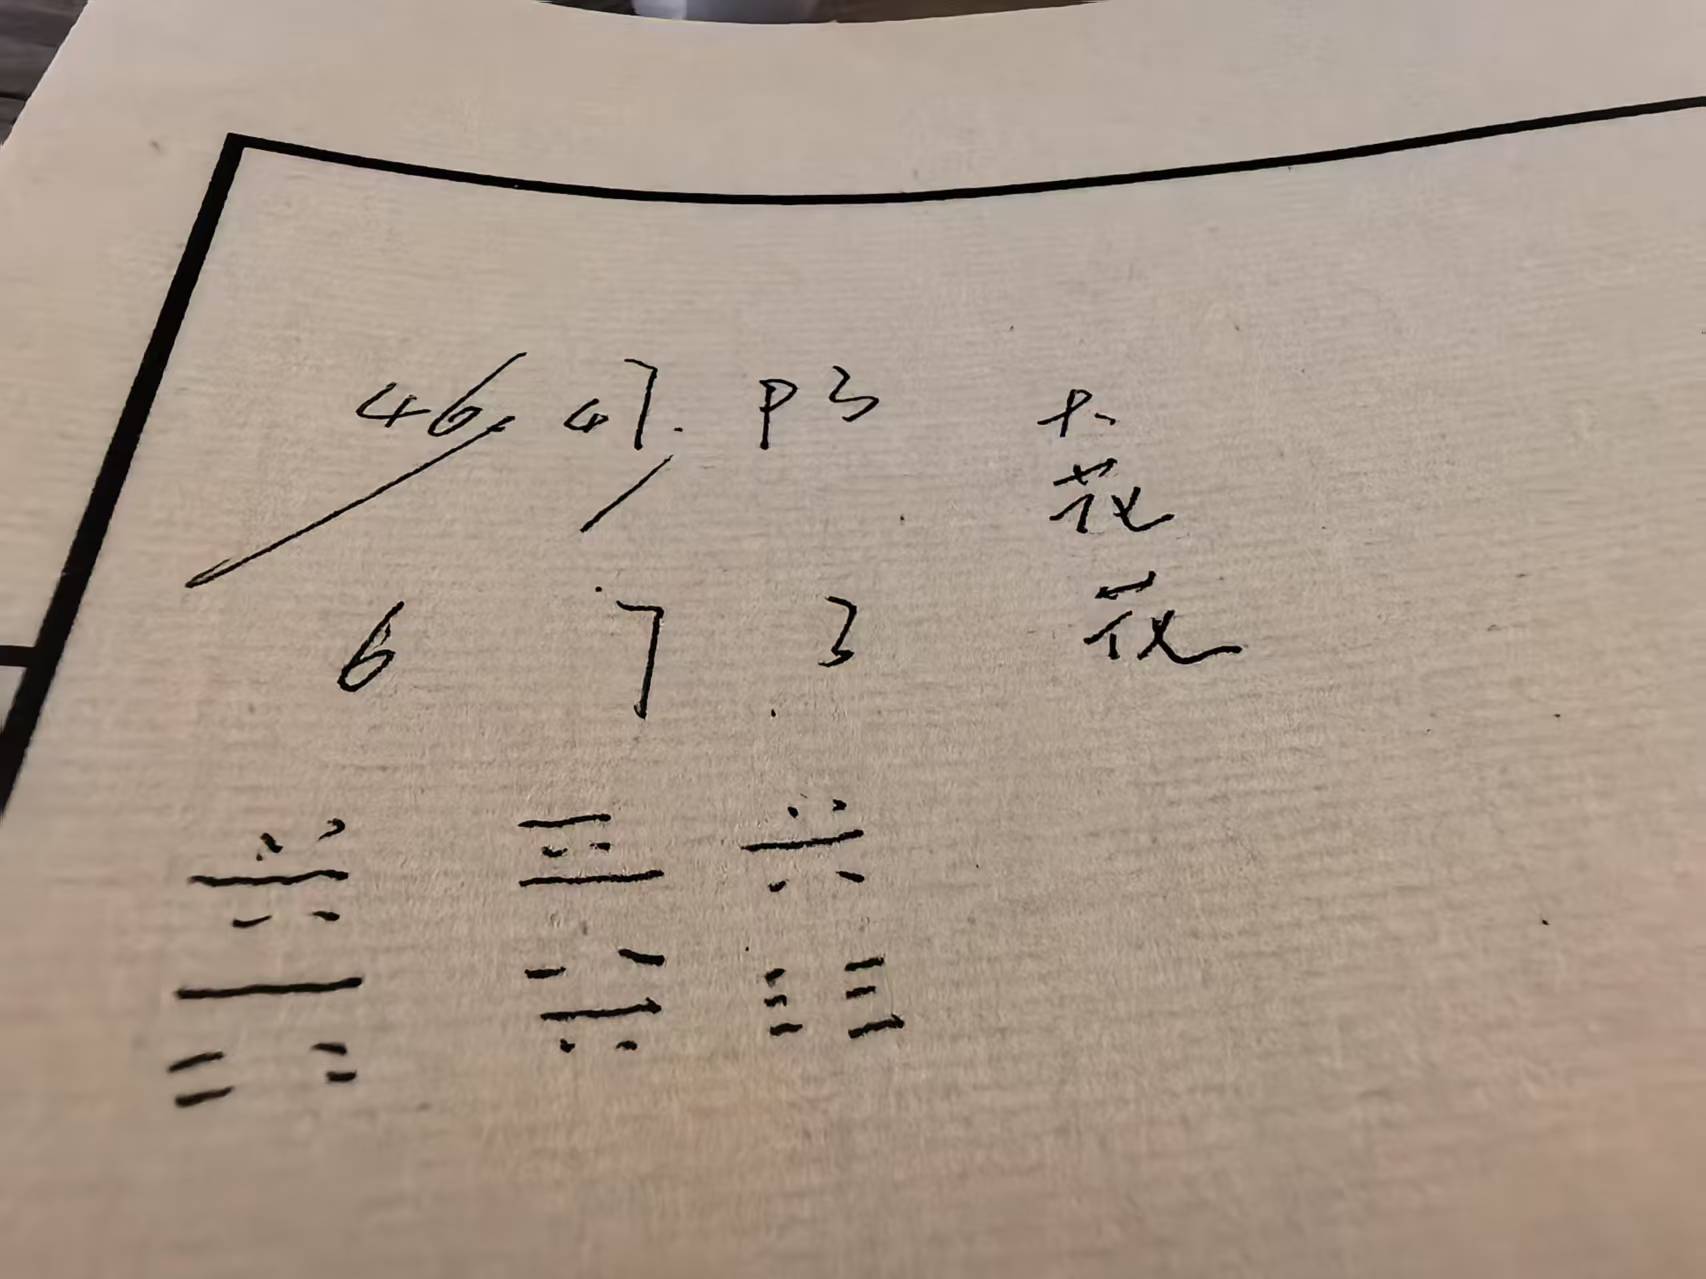 46. 47. P3
6 7 3
花
花